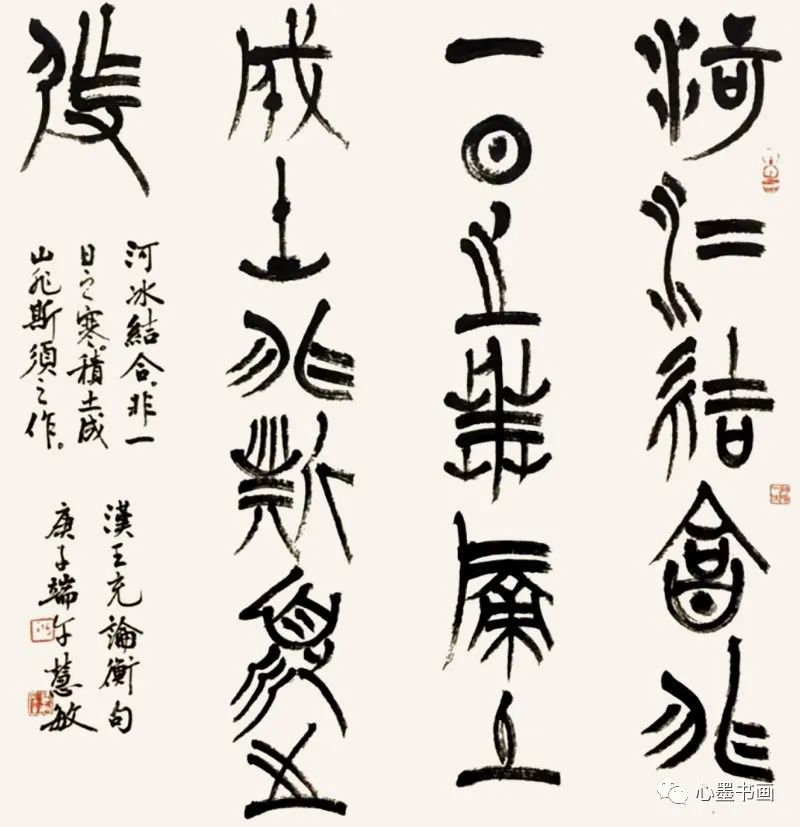 河冰結合非
一日之寒積土
成山非斯須之
作
河冰結合。非一
日之寒。積土成
山非斯須之作。
漢王充論衡句
庚子端午慧敏
心墨书画